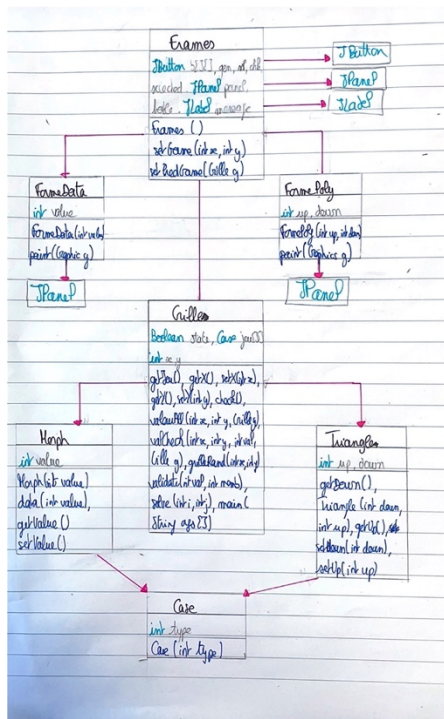 Frames
JButton
JPanel
JLabel
selected JPanel panel,
JLabel message
Frames ()
setGame (int x, int y)
(Grille g)
FormeData
int value
FormeData (int value)
paint (Graphic g)
JPanel
FormePoly
int up, down
FormePoly (int up, int down)
paint (Graphics g)
JPanel
Grilles
Boolean state, Case jeu[][]
int x, y
getJeu(), getX(), setX(int x),
getY(), setY(int y), check(),
(int x, int y, Grille g),
valCheck (int x, int y, int val,
Grille g), grilleRand (int x, int y)
validate (int val, int nomb),
solve (int i, int j), main (
String args[])
Morph
int value
Morph (int value)
data (int value),
getValue ()
setValue ()
Triangles
int up, down
getDown (),
Triangle (int down,
int up), getUp(),
setDown (int down),
setUp (int up)
Case
int type
Case (int type)